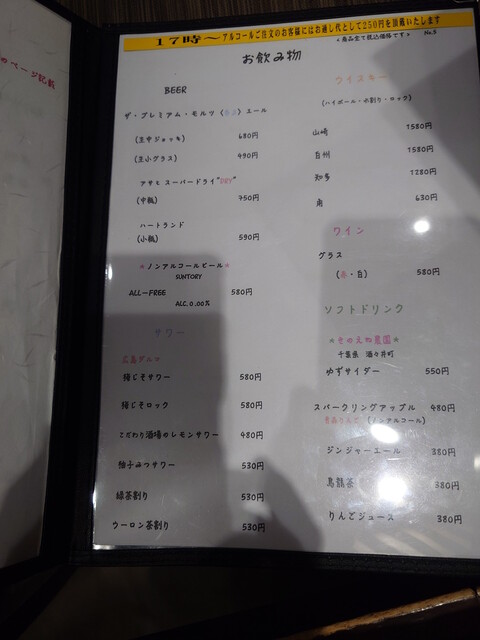 のページ記載
17時～アルコールご注文のお客様にはお通し代として250円を頂戴いたします
＊商品全て税込価格です＊ No.5
お飲み物
BEER
ザ・プレミアム・モルツ〈香る〉エール
(生中ジョッキ) 680円
(生小グラス) 490円
アサヒ スーパードライ"DRY"
(中瓶) 750円
ハートランド
(小瓶) 590円
＊ノンアルコールビール＊
SUNTORY
ALL-FREE 580円
ALC.0.00%
サワー
広島ダルマ
梅じそサワー 580円
梅じそロック 580円
こだわり酒場のレモンサワー 480円
柚子みつサワー 530円
緑茶割り 530円
ウーロン茶割り 530円
ウイスキー
(ハイボール・水割り・ロック)
山崎 1580円
白州 1580円
知多 1280円
角 630円
ワイン
グラス
(赤・白) 580円
ソフトドリンク
千葉県 酒々井町
ゆずサイダー 550円
スパークリングアップル 480円
青森りんご (ノンアルコール)
ジンジャーエール 380円
烏龍茶 380円
りんごジュース 380円